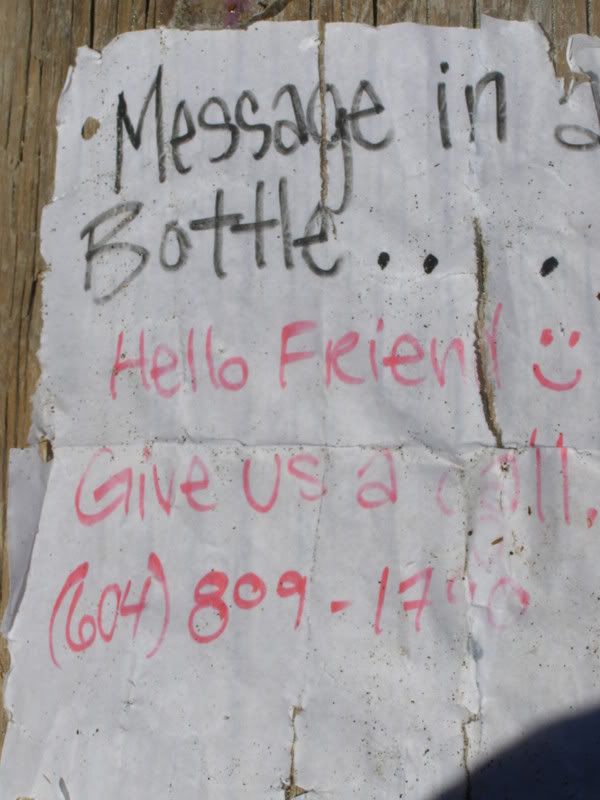 Message in a
Bottle...
Hello Friend :)
Give us a call.
(604) 809-